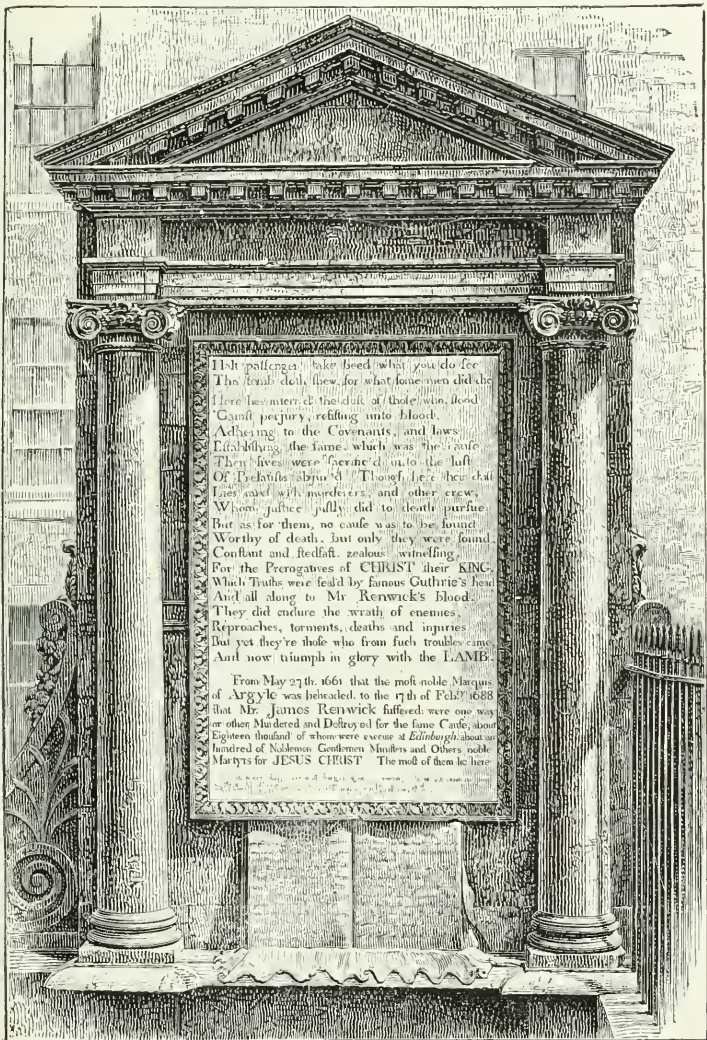 Halt paſſenger, take heed what you do ſee
This tomb doth ſhew, for what ſome men did die
Here lies interr'd the duſt of thoſe who ſtood
'Gainſt perjury, reſiſting unto blood,
Adhering to the Covenants, and laws
Eſtabliſhing the ſame, which was the cauſe
Their lives were ſacrific'd unto the luſt
Of Prelatiſts abjur'd. Though here their duſt
Lies mixt with murderers, and other crew,
Whom juſtice juſtly did to death purſue:
But as for them, no cauſe was to be found
Worthy of death, but only they were found,
Conſtant and ſtedfaſt, zealous, witneſſing,
For the Prerogatives of CHRIST their KING.
Which Truths were ſeal'd by famous Guthrie's head
And all along to Mr Renwick's blood.
They did endure the wrath of enemies,
Reproaches, torments, deaths and injuries
But yet they're thoſe who from ſuch troubles came,
And now triumph in glory with the LAMB.
From May 27th. 1661 that the moſt noble Marquis
of Argyle was beheaded, to the 17th of Feb.ry 1688
that Mr. James Renwick ſuffered: were one way
or other, Murdered and Deſtroyed for the ſame Cauſe, about
Eighteen thouſand of whom were execute at Edinburgh, about an
hundred of Noblemen Gentlemen Miniſters and Others noble
Martyrs for JESUS CHRIST The moſt of them lie here